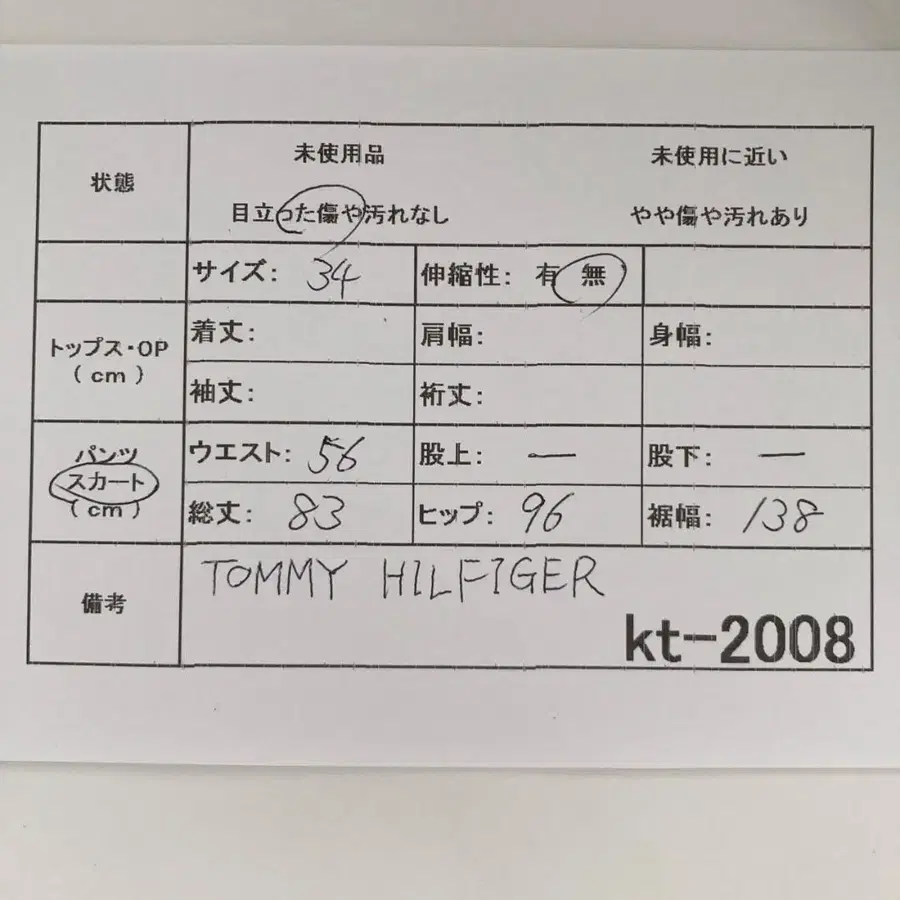 状態
未使用品 未使用に近い
目立った傷や汚れなし やや傷や汚れあり
サイズ: 34 伸縮性: 有 無
トップス・OP
(cm)
着丈: 肩幅: 身幅:
袖丈: 裄丈:
パンツ
スカート
(cm)
ウエスト: 56 股上: — 股下: —
総丈: 83 ヒップ: 96 裾幅: 138
備考
TOMMY HILFIGER
kt-2008